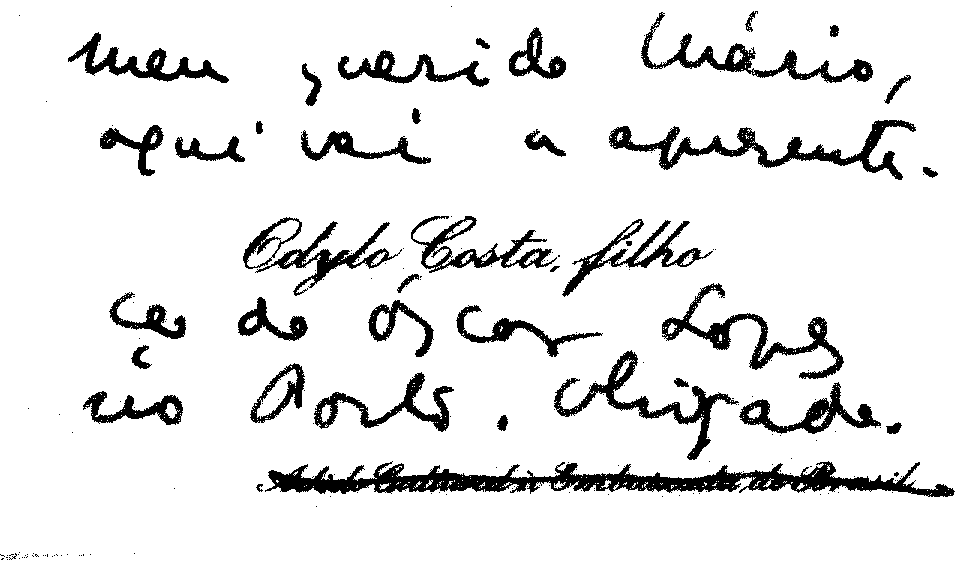 meu querido Mário,
aqui vai a apresenta-
Odylo Costa, filho
ção do Óscar Lopes
no Porto. Obrigado.
Adido Cultural à Embaixada do Brasil